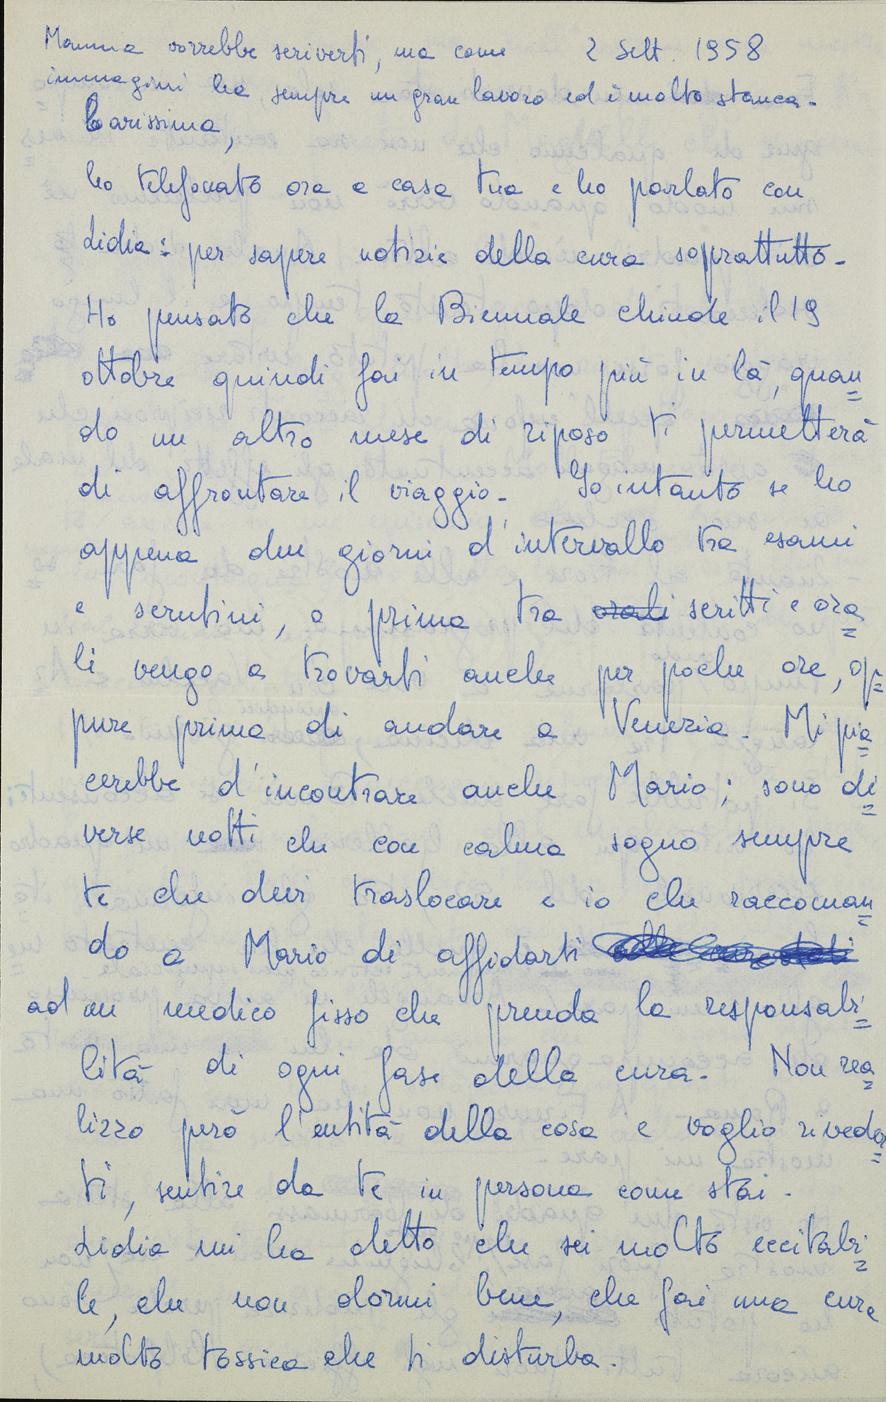 Mamma vorrebbe scriverti, ma come
immagini ha sempre un gran lavoro ed è molto stanca.
2 Sett. 1958
Carissima,
ho telefonato ora a casa tua e ho parlato con
Lidia: per sapere notizie della cura soprattutto.
Ho pensato che la Biennale chiude il 19
ottobre quindi fai in tempo più in là, quan=
do un altro mese di riposo ti permetterà
di affrontare il viaggio. Io intanto se ho
appena due giorni d'intervallo tra esami
e scrutini, o prima tra orali scritti e ora=
li vengo a trovarti anche per poche ore, op=
pure prima di andare a Venezia. Mi pia=
cerebbe d'incontrare anche Mario; sono di=
verse notti che con calma sogno sempre
te che devi traslocare e io che raccoman=
do a Mario di affidarti
ad un medico fisso che prenda la responsabi=
lità di ogni fase della cura. Non rea=
lizzo però l'entità della cosa e voglio riveder=
ti, sentire da te in persona come stai.
Lidia mi ha detto che sei molto eccitabi=
le, che non dormi bene, che fai una cura
molto tossica che ti disturba.